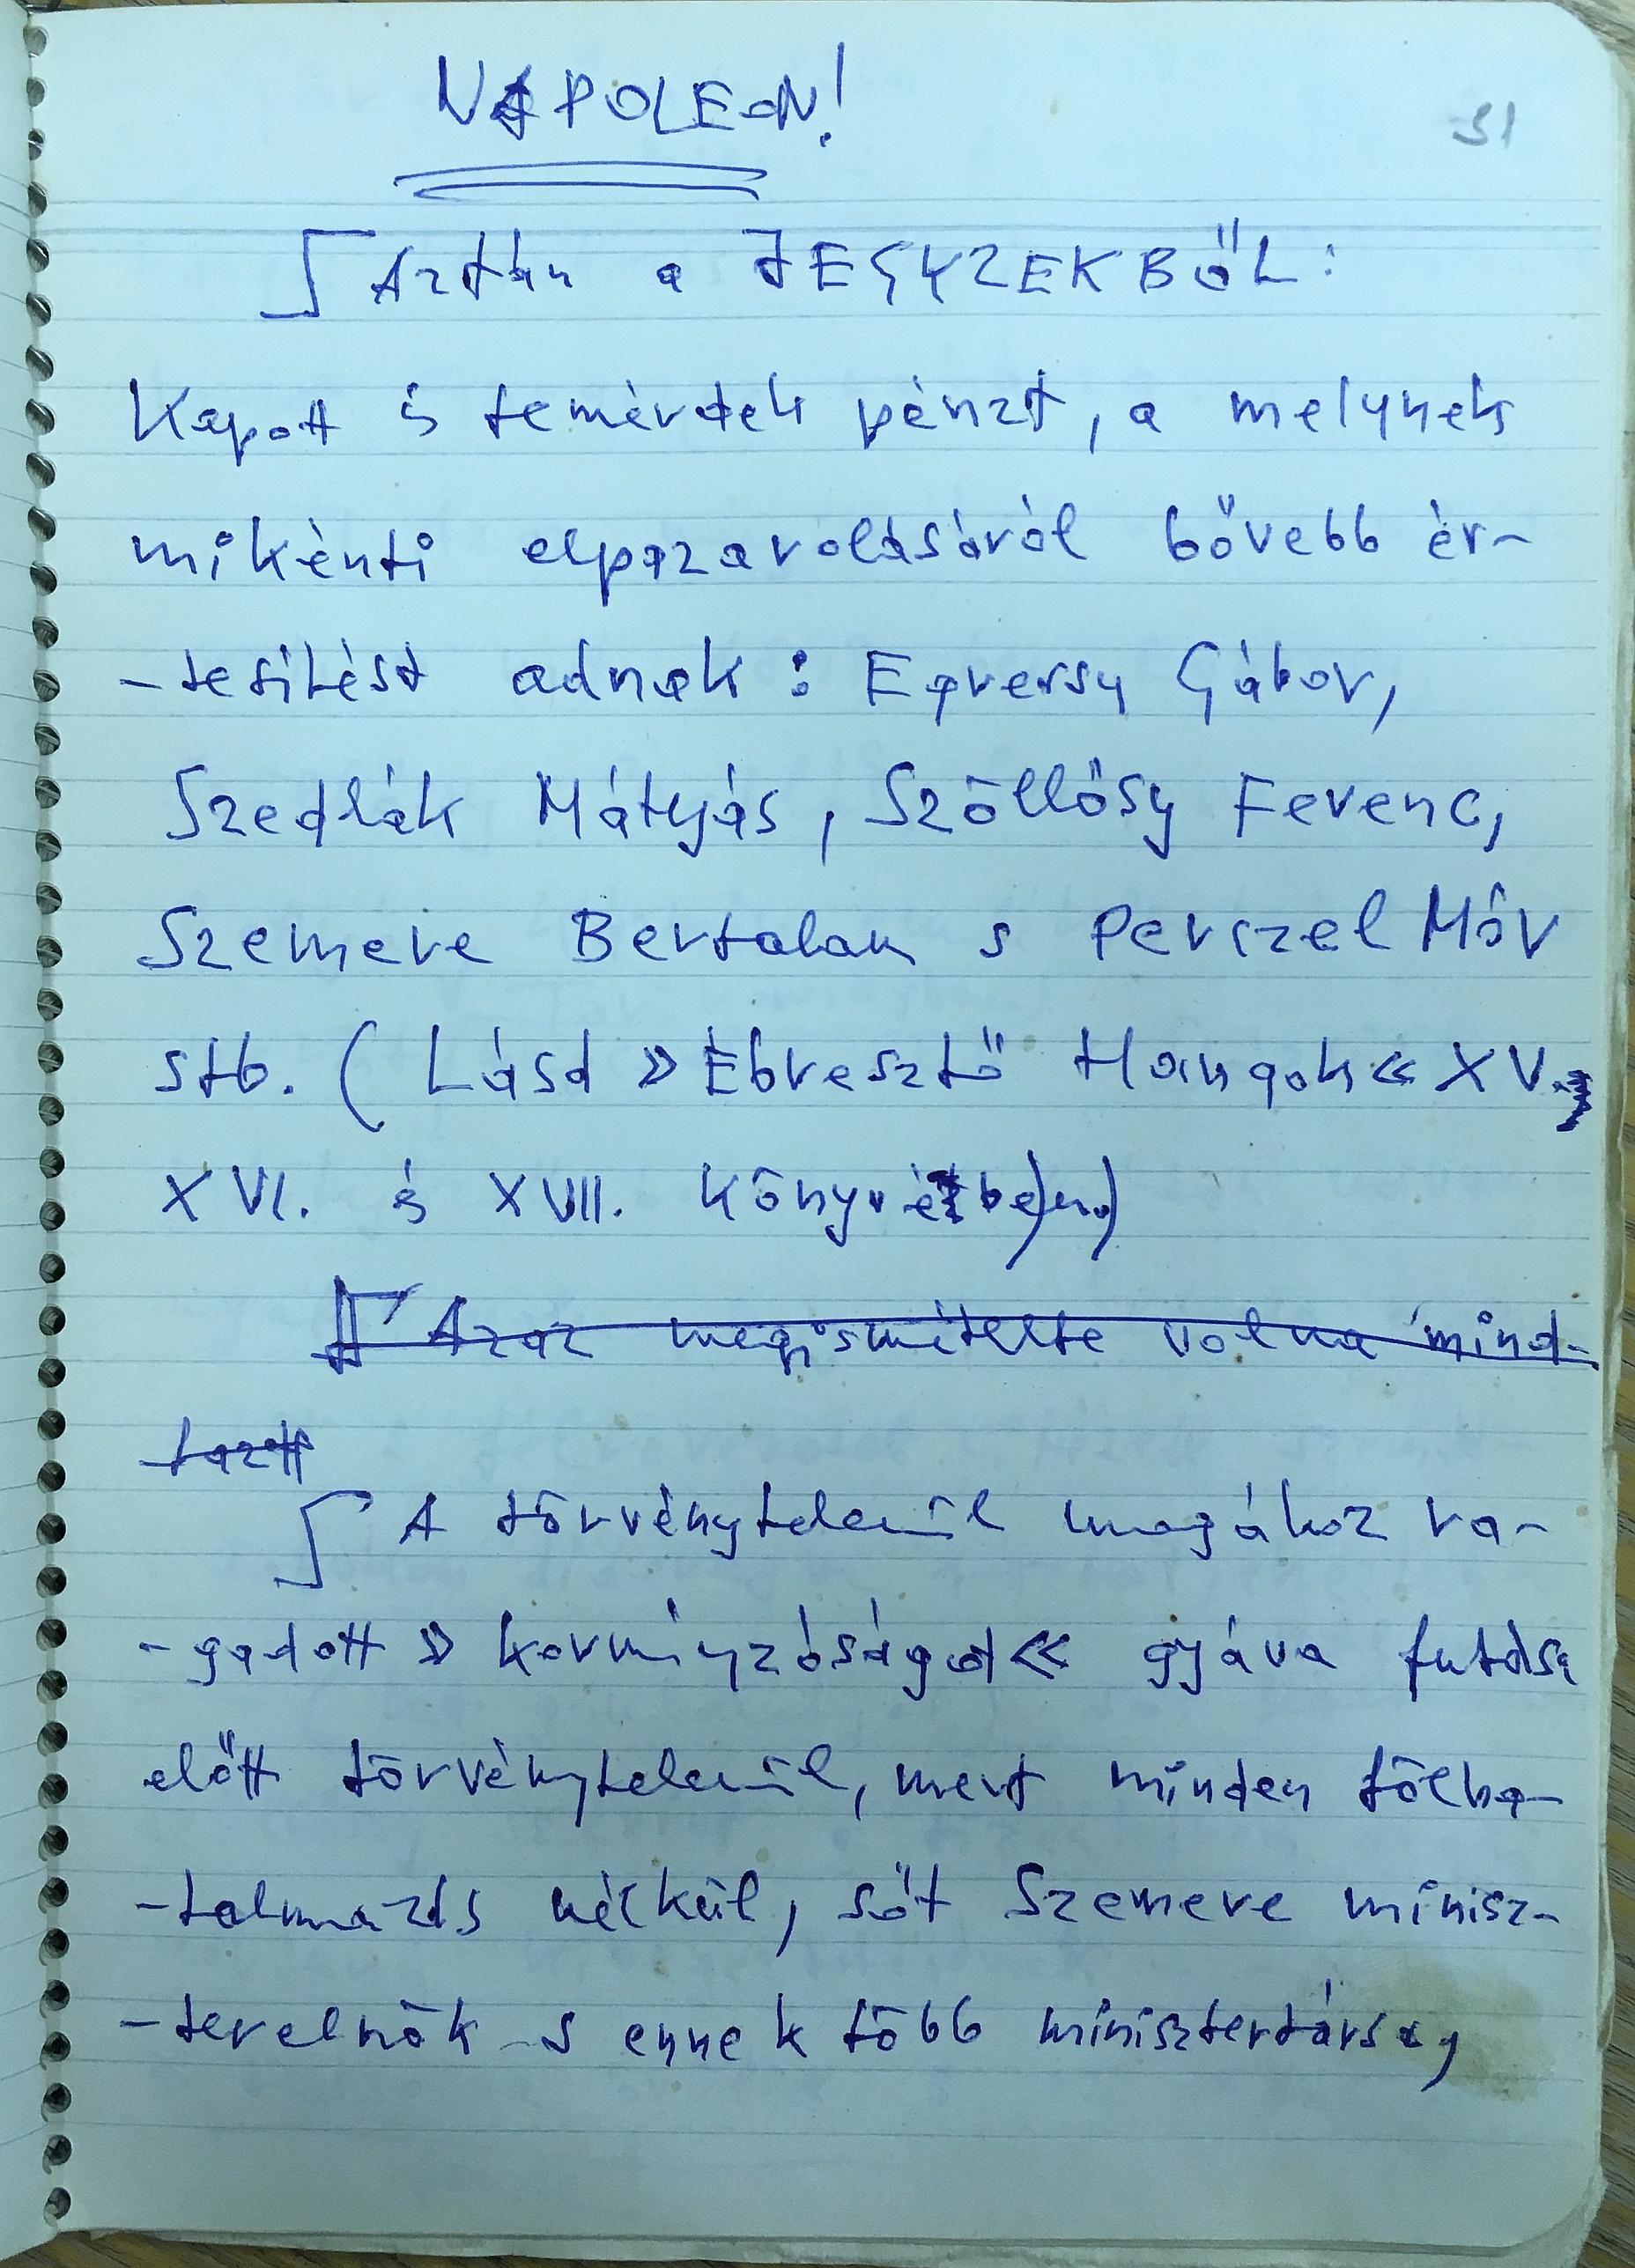 NAPOLEON!
31
Aztán a JEGYZEKBŐL:
Kapott és temérdek pénzt, a melynek
mikénti elpazarolásáról bővebb ér-
-tesitést adnak: Egressy Gábor,
Szedlák Mátyás, Szöllősy Ferenc,
Szemere Bertalan s Perczel Mór
stb. (Lásd »Ébresztő Hangok« XV.,
XVI. és XVII. könyvében.)
Azaz megismételte volna mind-
tazt
A törvénytelenül magához ra-
-gadott »kormányzóságot« gyáva futása
előtt törvénytelenül, mert minden fölha-
-talmazás nélkül, sőt Szemere minisz-
-terelnök s ennek több minisztertársa,